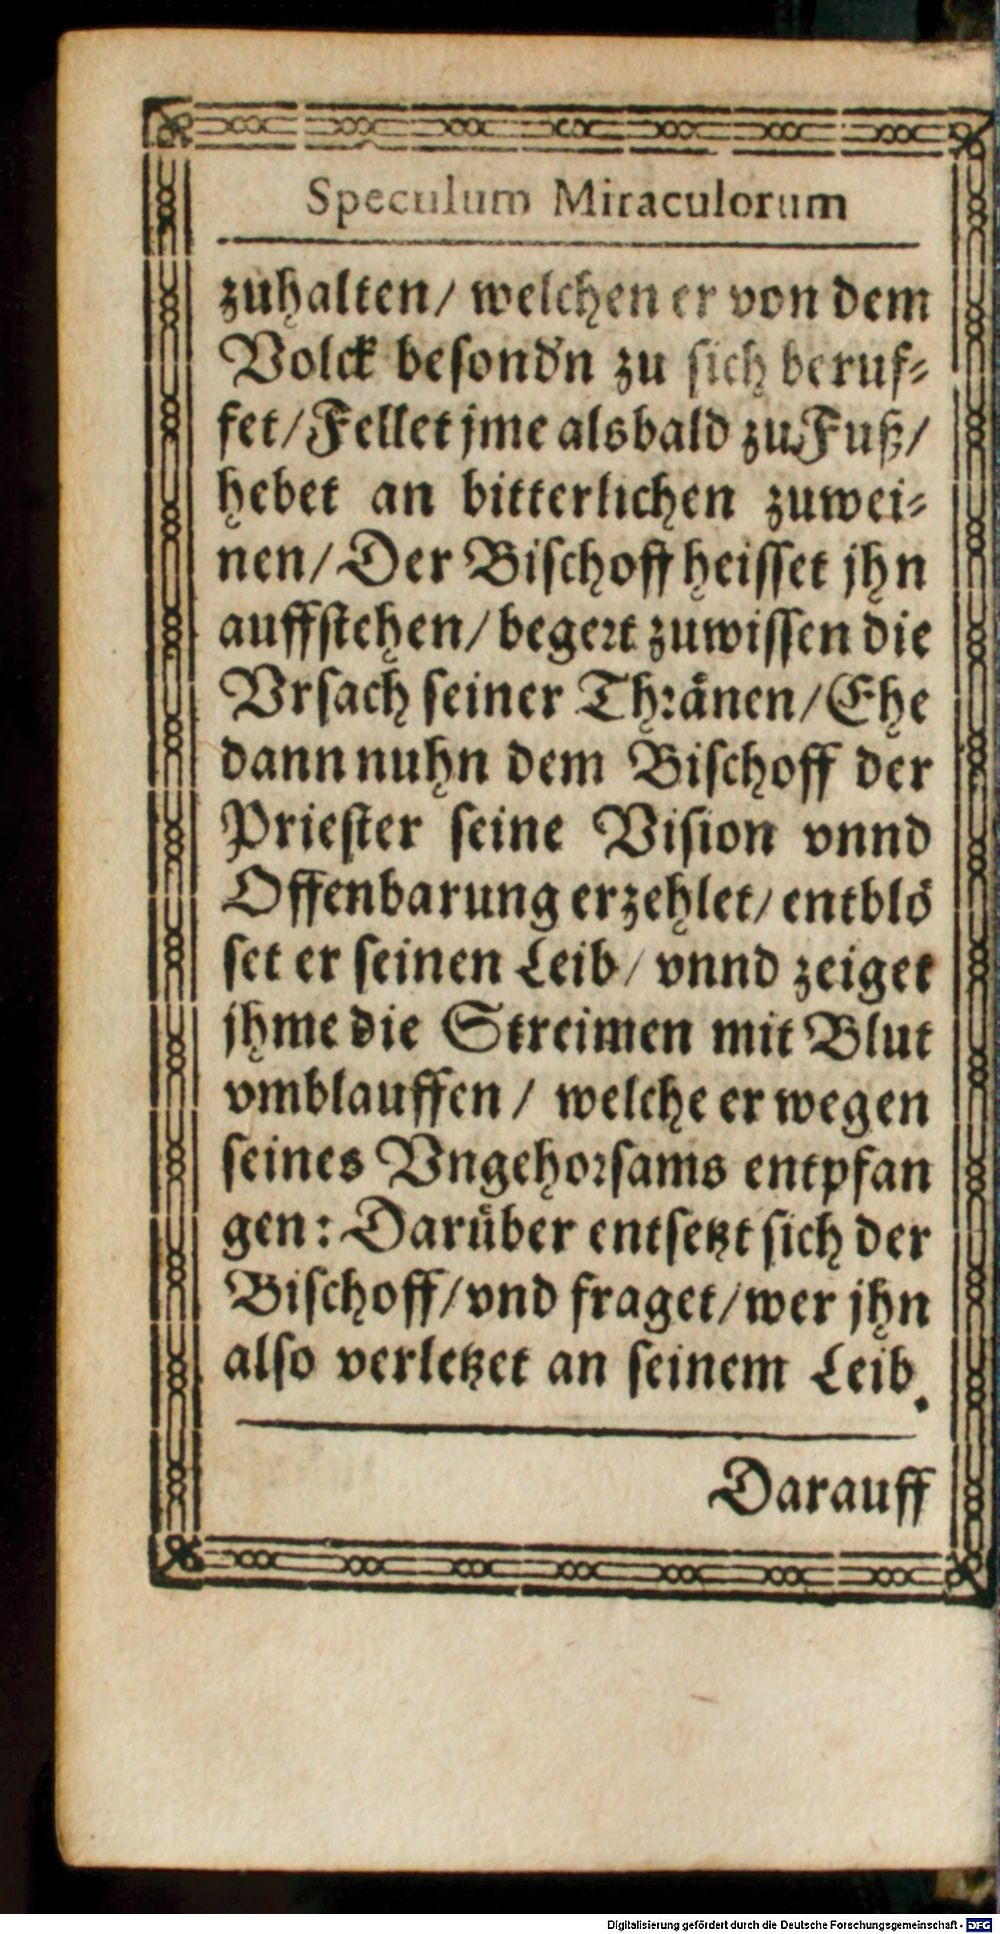 Speculum Miraculorum
zuhalten/ welchen er von dem
Volck besond'n zu sich beruf⸗
fet/ Fellet jme alsbald zu Fuß/
hebet an bitterlichen zuwei⸗
nen/ Der Bischoff heisset jhn
auffstehen/ begert zuwissen die
Vrsach seiner Thränen/ Ehe
dann nuhn dem Bischoff der
Priester seine Vision vnnd
Offenbarung erzehlet/ entblö
set er seinen Leib/ vnnd zeiget
jhme die Streimen mit Blut
vmblauffen/ welche er wegen
seines Vngehorsams entpfan
gen: Darüber entsetzt sich der
Bischoff/ vnd fraget/ wer jhn
also verletzet an seinem Leib.
Darauff
Digitalisierung gefördert durch die Deutsche Forschungsgemeinschaft - DFG